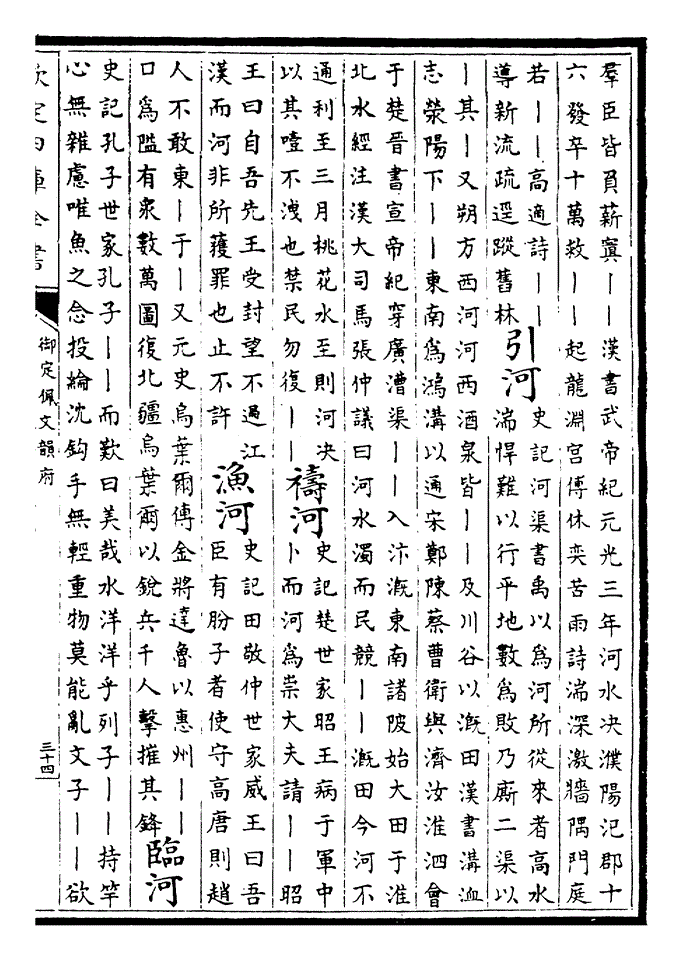 羣臣皆負薪寘丨丨漢書武帝紀元光三年河水决濮陽汜郡十
六發卒十萬救丨丨起龍淵宫傅休奕苦雨詩湍深激牆隅門庭
若丨丨高適詩丨丨
導新流疏逕蹤舊林
引河
史記河渠書禹以為河所從來者高水
湍悍難以行平地數為敗乃廝二渠以
丨其丨又朔方西河河西酒泉皆丨丨及川谷以溉田漢書溝洫
志滎陽下丨丨東南為鴻溝以通宋鄭陳蔡曹衛與濟汝淮泗會
于楚晉書宣帝紀穿廣漕渠丨丨入汴溉東南諸陂始大田于淮
北水經注漢大司馬張仲議曰河水濁而民競丨丨溉田今河不
通利至三月桃花水至則河决
以其噎不洩也禁民勿復丨丨
禱河
史記楚世家昭王病于軍中
卜而河為祟大夫請丨丨昭
王曰自吾先王受封望不過江
漢而河非所獲罪也止不許
漁河
史記田敬仲世家威王曰吾
臣有肦子者使守高唐則趙
人不敢東丨于丨又元史烏葉爾傳金將達魯以惠州丨丨
口為隘有衆數萬圖復北疆烏葉爾以銳兵千人擊摧其鋒
臨河
史記孔子世家孔子丨丨而歎曰美哉水洋洋乎列子丨丨持竿
心無雜慮唯魚之念投綸沈鈎手無輕重物莫能亂文子丨丨欲
欽定四庫全書
御定佩文韻府
三十四